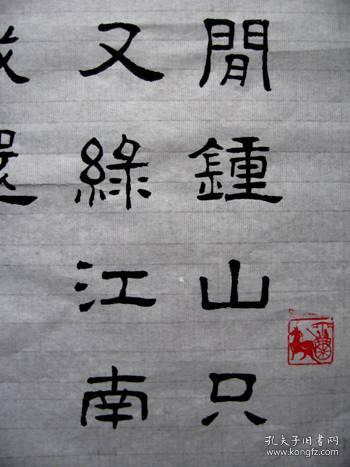 閒鍾山只
又綠江南
還
孔夫子旧书网
www.kongfz.com